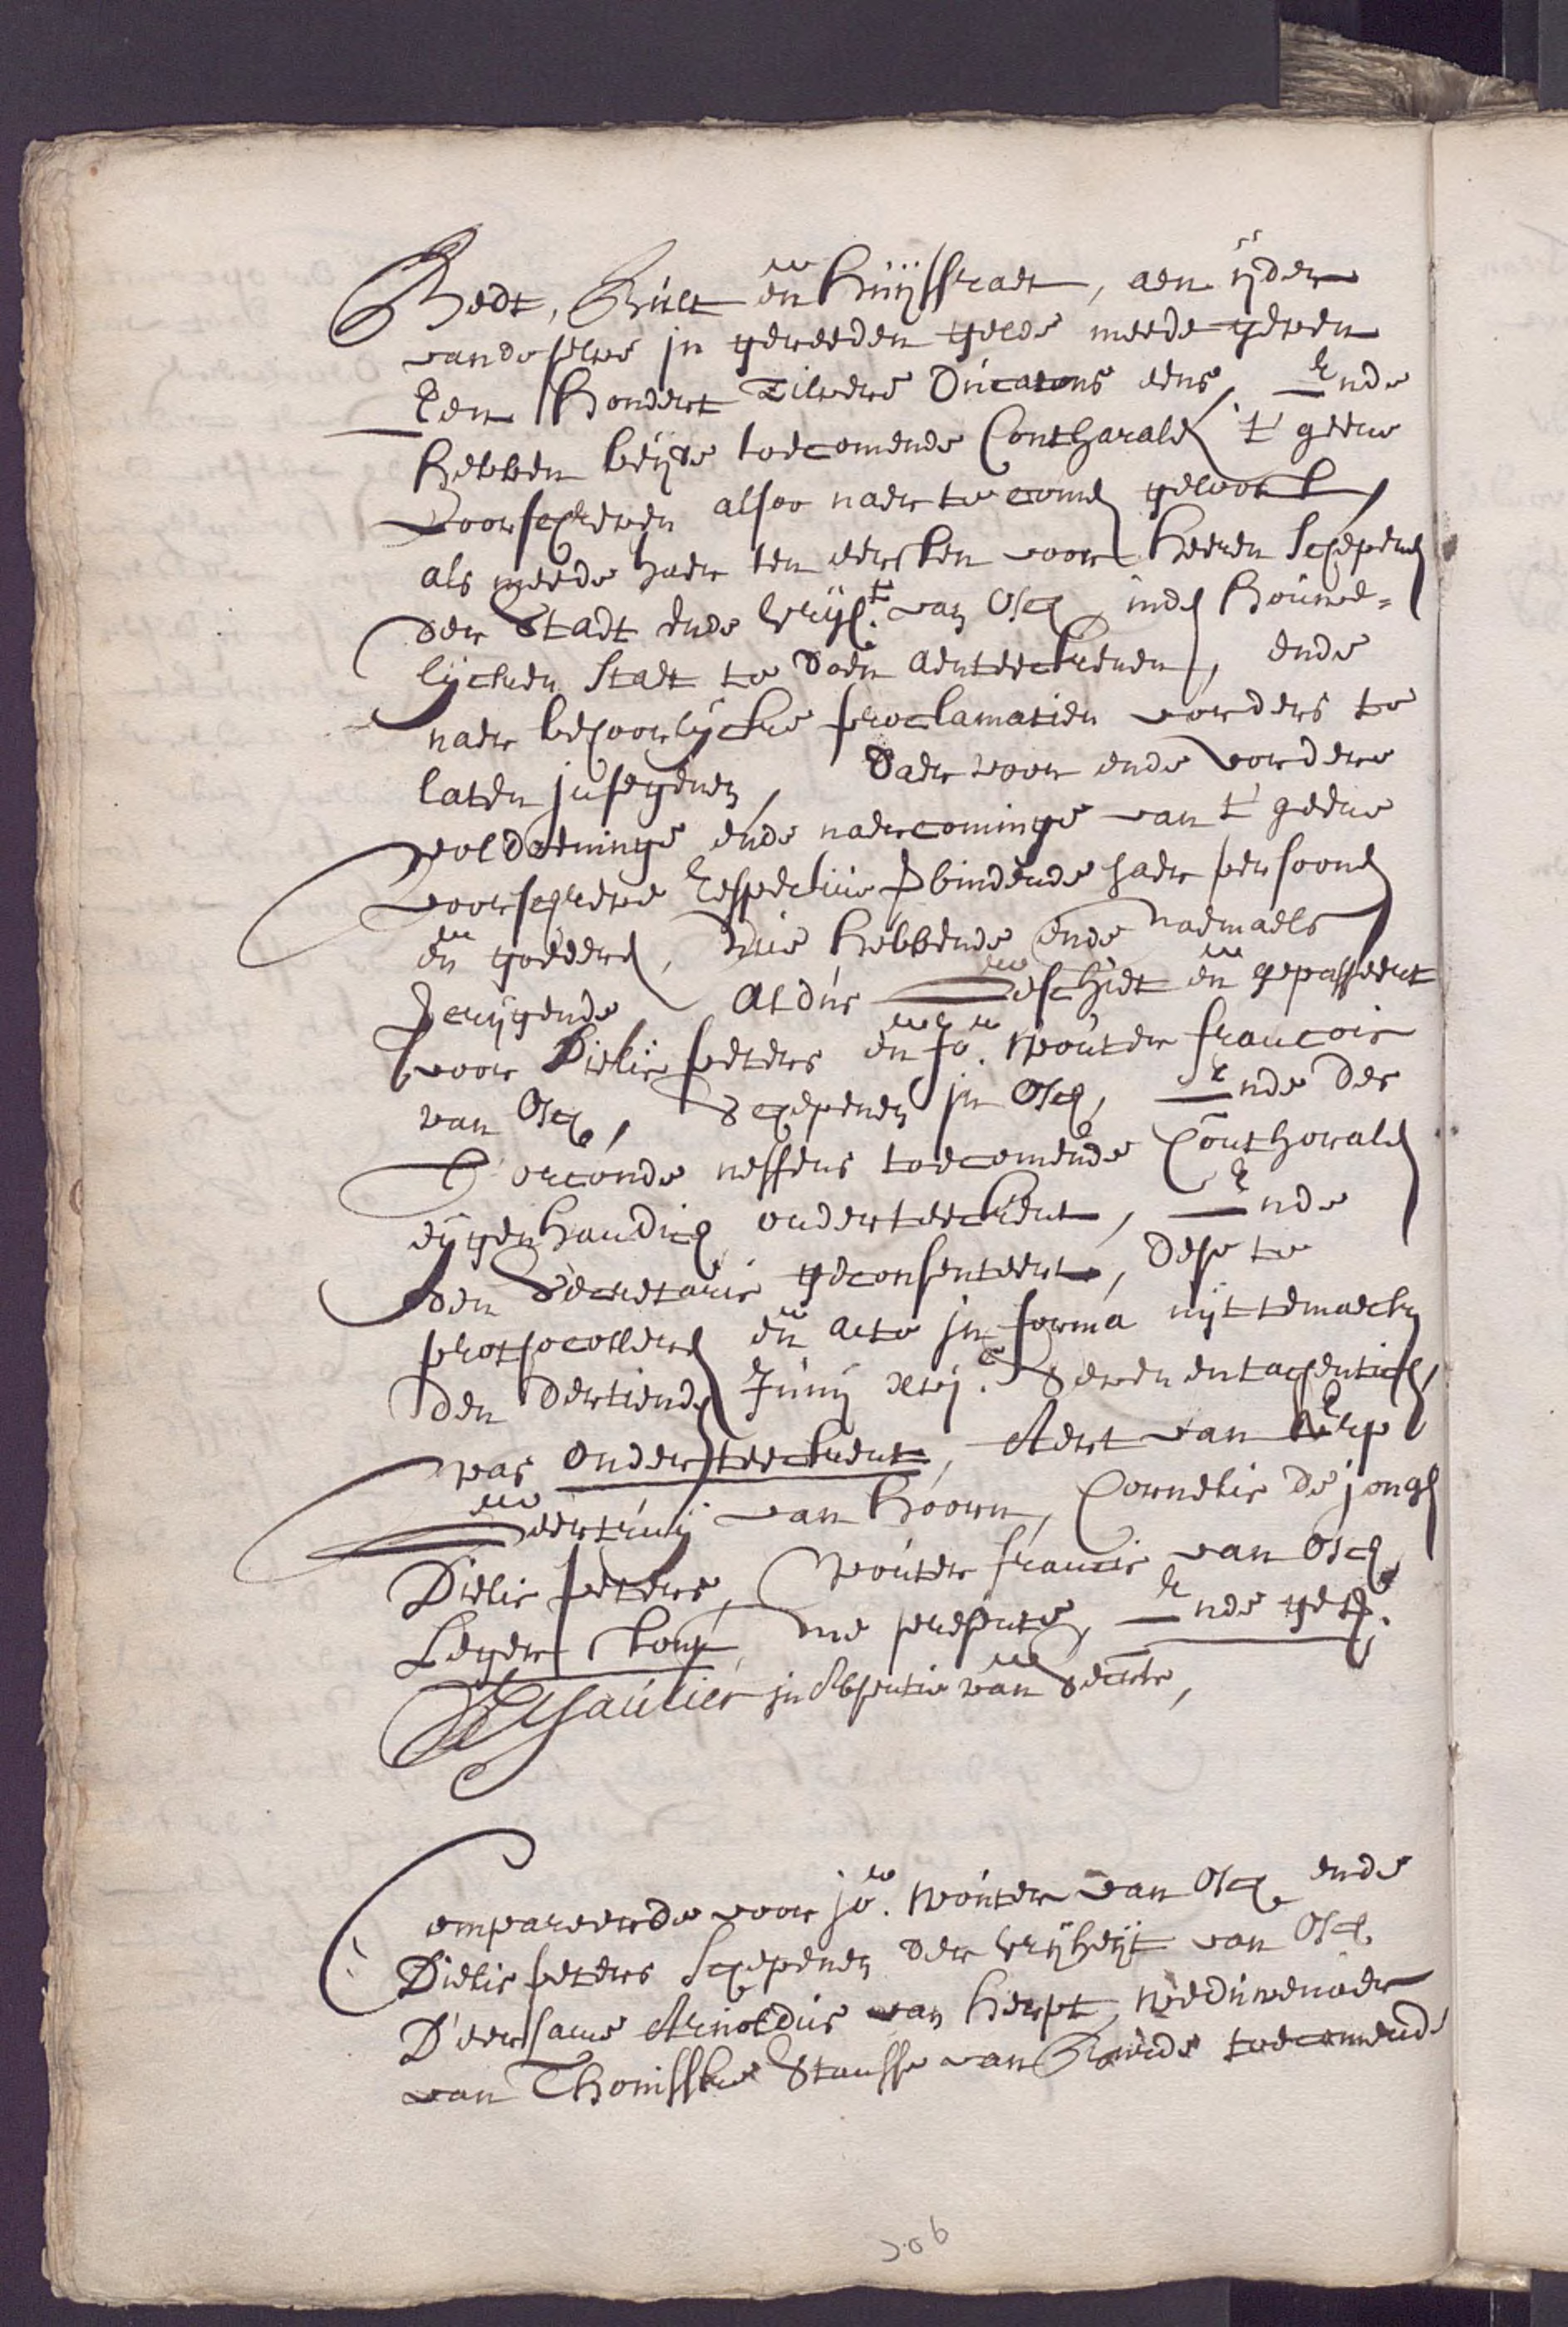 Bedt, Bült en huijsraet, aen ijder
van deselve in gereeden gelde meede geven
Een hondert zilvere ducatons eens, Ende
hebben beijde toecomende Conthoralen t' geene
voorschreven alsoo naer te comen geloott,
als meede haer ten eersten voor heeren schepenen
der Stadt ende vrijh.t van Osch, inden houwe=
lijcken staet te doen aenteeckenen, ende
naer behoorlijcke proclamatien vorders te
laten insegenen, Daer voor ende vordere
voldoeninge ende naercominge van t' geene
voorschreve respective verbindende haer persoonen
en goederen, Nu hebbende ende naemaels
vercrijgende, Aldus Geschiet en gepasseert
voor Dielis Peters en Jo. wouter francois
van Osch, Schepenen in Osch, Ende des
T' orconde neffens toecomende Conthoralen
eijgenhandich onderteeckent, Ende
den Secretaris geconsenteert, dese te
prothocolleren en acte in forma uijttemaecken
den dertienden Junij xvj.c Sevenentachentich,
was onderteeckent, Aert van Erp
Geertruij van hoorn, Cornelis de jongh
Dielis Peters, wouter francis van Osch
Leger stont, me presente, Ende get.
in Absentie van Secrets,
Compareerde voor jo. wouter van Osch ende
Dielis Peters Schepenen der vrijheijt van Osch.
D'eersame Arnoldus van herpt, weduwenaer
van Thonisske Stansse van toecomende
306